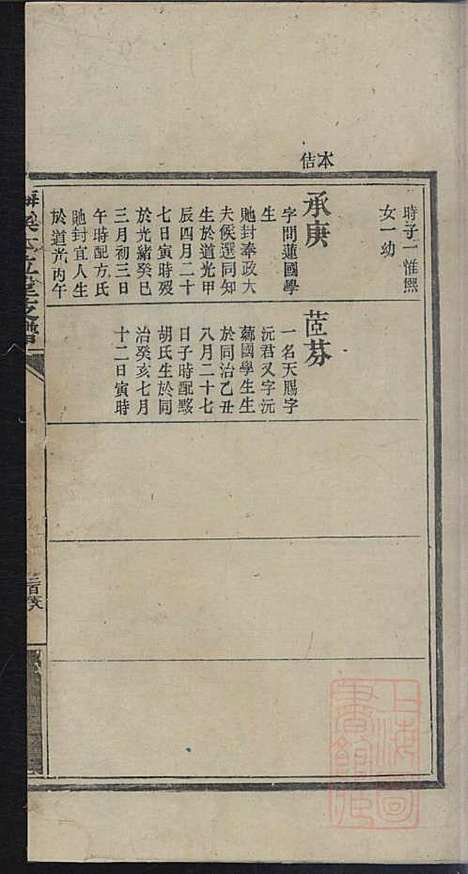 本
佶
時子一惟熙
女一幼
承庚
字問蓮國學
生
馳封奉政大
夫候選同知
生於道光甲
辰四月二十
七日寅時殁
於光緒癸巳
三月初三日
午時配方氏
馳封宜人生
於道光丙午
茝芬
一名天賜字
沅君又字沅
蘅國學生生
於同治乙丑
八月二十七
日子時配黟
胡氏生於同
治癸亥七月
十二日寅時
上海圖
書館藏